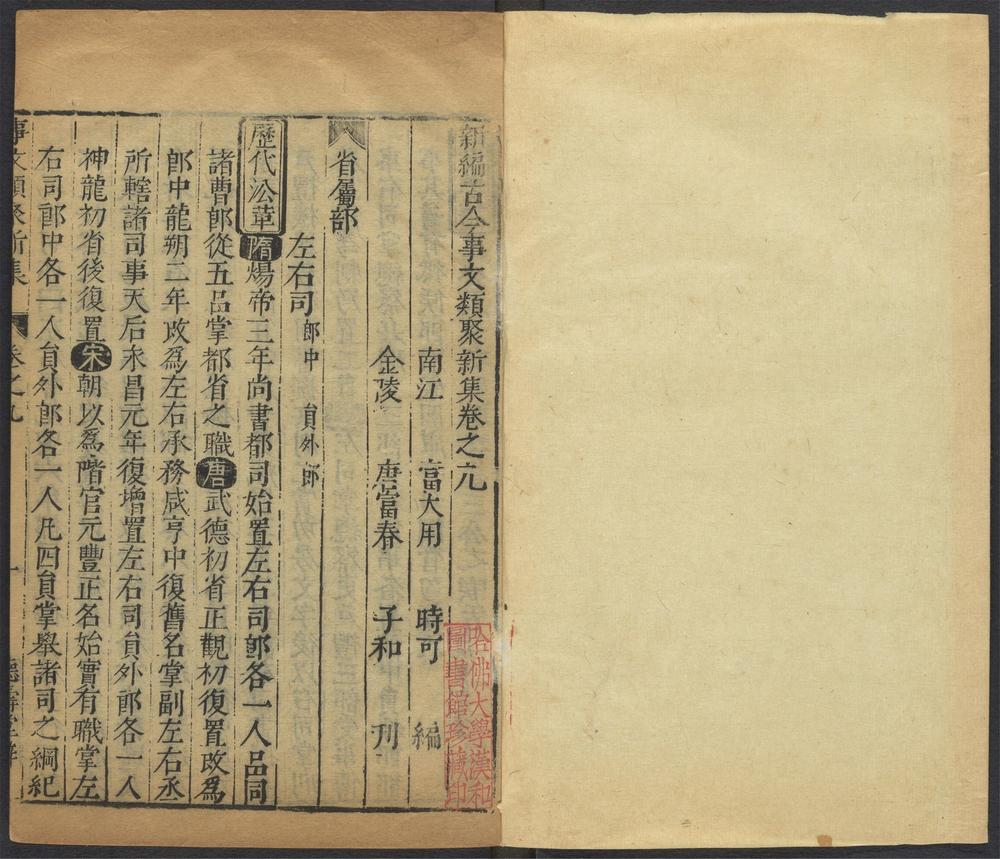 新編古今事文類聚新集卷之九
南江 富大用 時可 編
金陵 唐富春 子和 刊
省屬部
左右司郎中 員外郎
歷代㳂革隋煬帝三年尚書都司始置左右司郎各一人品同
諸曹郎從五品掌都省之職唐武德初省正觀初復置改爲
郎中龍朔二年改爲左右承務咸亨中復舊名掌副左右丞
所轄諸司事天后永昌元年復增置左右司員外郎各一人
神龍初省後復置宋朝以爲階官元豐正名始實有職掌左
右司郎中各一人員外郎各一人凡四員掌舉諸司之綱紀
事文類聚新集 卷之九 一 德壽堂梓
哈佛大學漢和
圖書館珍藏印